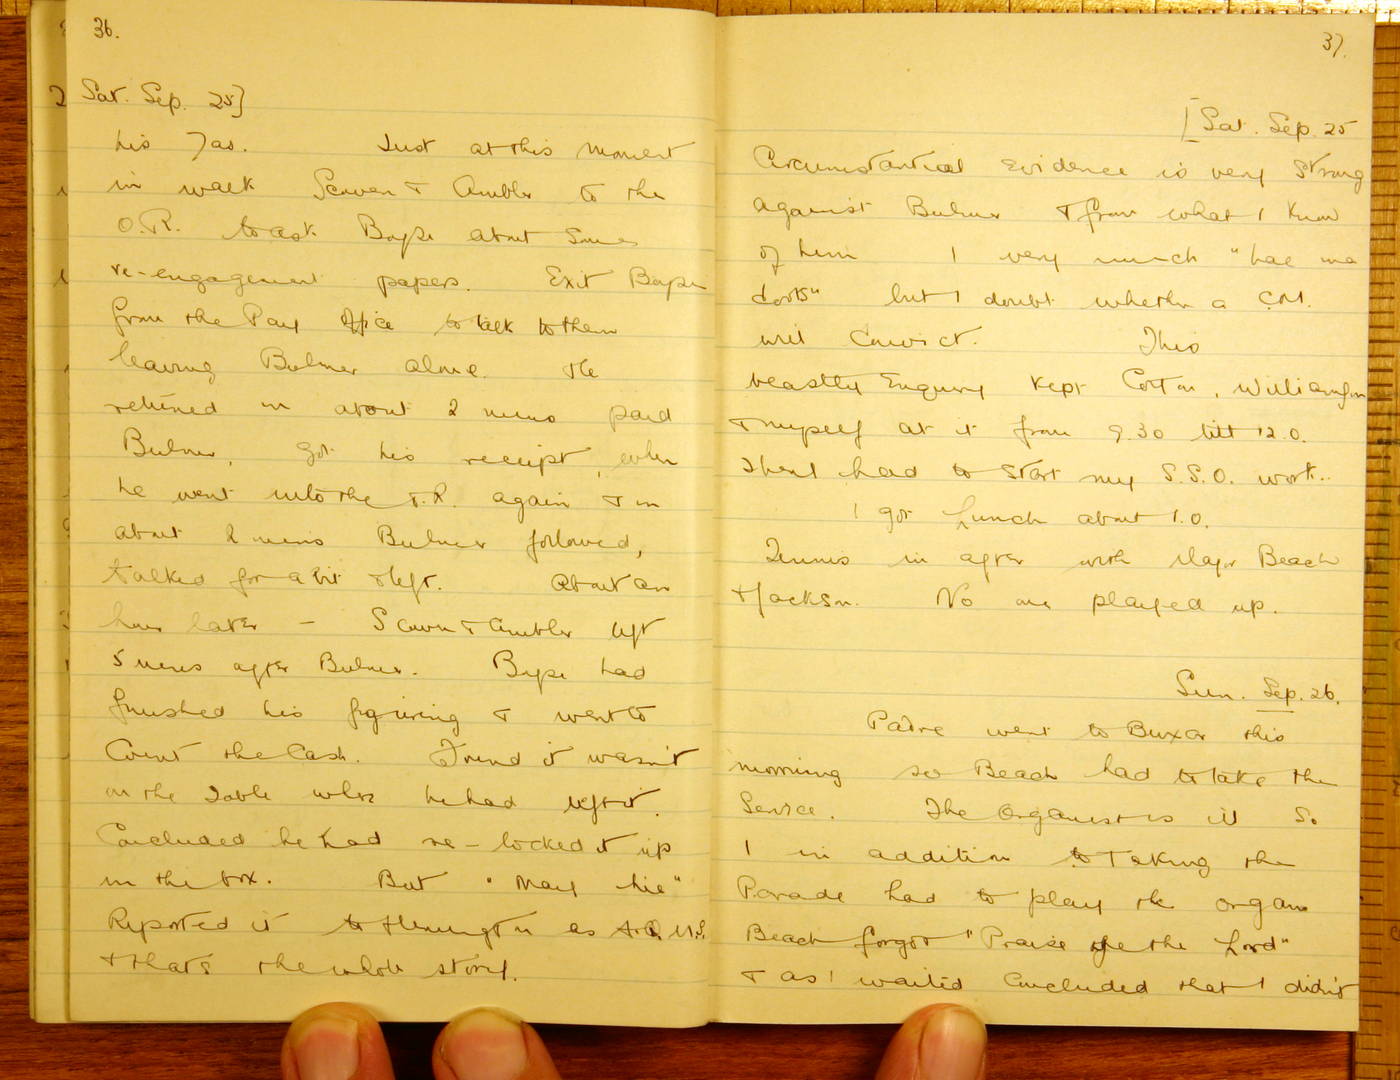 36.
Sat. Sep. 25]
his 7as. Just at this moment
in walk Scowen & Ambler to the
O.R. to ask Bape about some
re-engagement papers. Exit Bape
from the Pay Office to talk to them
leaving Bulmer alone. He
returned in about 2 mins paid
Bulmer, got his receipt, when
he went into the O.R. again & in
about 2 mins Bulmer followed,
talked for a bit & left. About an
hour later - Scowen & Ambler left
5 mins after Bulmer. Bape had
finished his figuring & went to
Count the Cash. Found it wasn't
on the table where he had left it.
Concluded he had re-locked it up
in the box. But "Mary hie"
Reported it to Hemington as A.Q.M.S.
& that's the whole story.
37.
[Sat. Sep. 25
Circumstantial Evidence is very Strong
against Bulmer & from what I know
of him I very much "hae ma
doots" but I doubt whether a C.M.
will Convict. This
beastly Enquiry kept Cotton, Williamson
& myself at it from 9.30 till 12.0.
Then I had to start my S.S.O. work..
I got Lunch about 1.0.
Tennis in after with Major Beach
& Jackson. No one played up.
Sun. Sep. 26.
Padre went to Buxar this
morning so Beach had to take the
Service. The Organist is ill So
I in addition to Taking the
Parade had to play the organ
Beach forgot "Praise ye the Lord"
& as I waited Concluded that I didn't